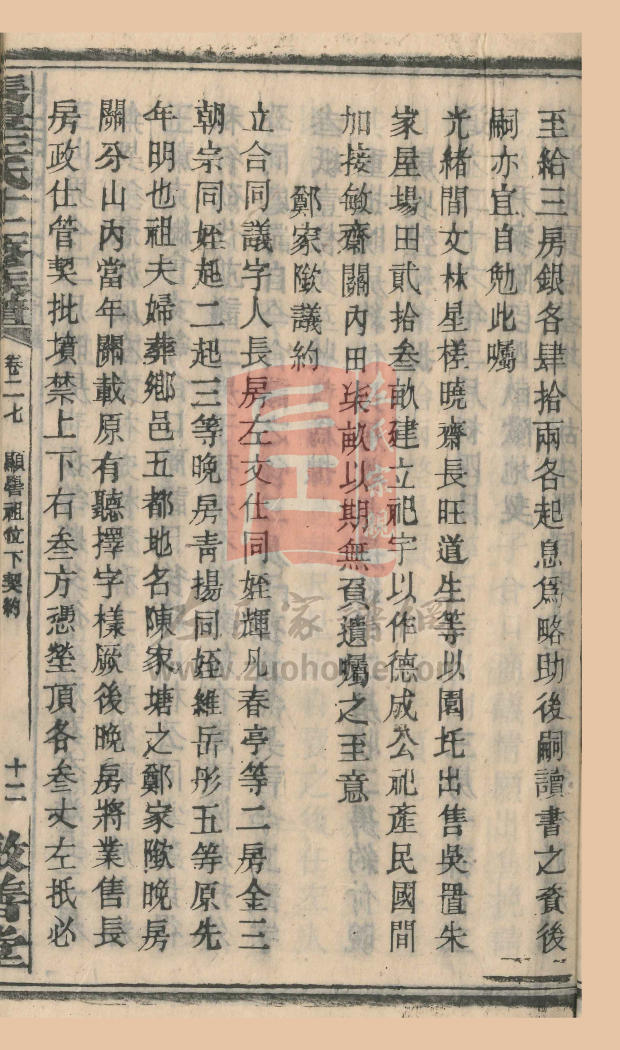 至給三房銀各肆拾兩各起息爲略助後嗣讀書之資後
嗣亦宜自勉此囑
光緒間文林星槎曉齋長旺道生等以園坵出售吳置朱
家屋塲田貳拾叁畝建立祀宇以作德成公祀產民國間
加接敏齋關內田柒畝以期無負遺囑之至意
鄭家陂議約
立合同議字人長房左文仕同姪輝凡春亭等二房金三
朝宗同姪起二起三等晚房靑揚同姪維岳彤五等原先
年明也祖夫婦葬鄉邑五都地名陳家塘之鄭家陂晚房
關分山內當年關載原有聽擇字樣厥後晚房將業售長
房政仕管契批墳禁上下右叁方憑塋頂各叁丈左抵必
氏十二修族譜
卷二七
顯譽祖位下契約
十二
敦善堂
www.zuohome.com